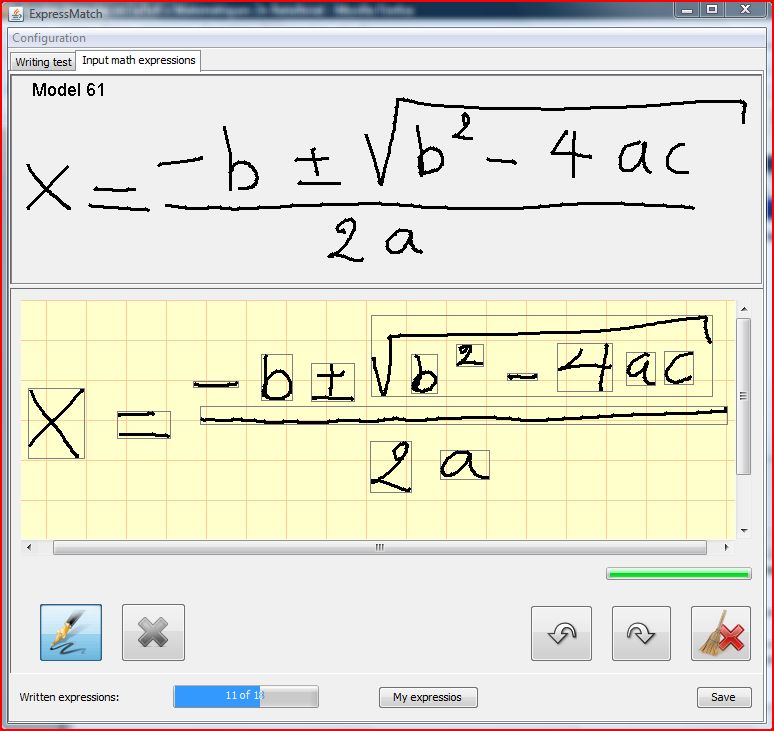 ExpressMatch
Configuration
Writing test
Input math expressions
Model 61
x = (-b ± √(b² - 4ac)) / 2a
x = (-b ± √(b² - 4ac)) / 2a
Written expressions:
11 of
My expressios
Save